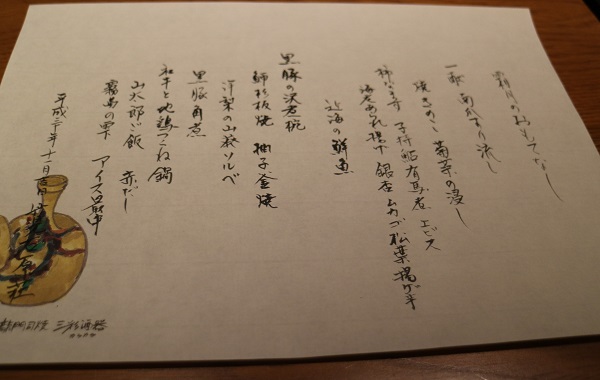 霜月のおもてなし
一献 すり流し
焼きのこ 菊菜の浸し
柿なます 子持鮎有馬煮 エビス
海老あられ揚げ 銀杏 ムカゴ 松葉揚げ
近海の鮮魚
黒豚の沢煮椀
鰤杉板焼 柚子釜焼
洋梨の山萩ソルベ
黒豚角煮
和牛と地鶏つくね鍋
山太郎ご飯 赤だし
霧島の雫 アイス最中
平成 年十一月吉日 石原荘
三彩酒